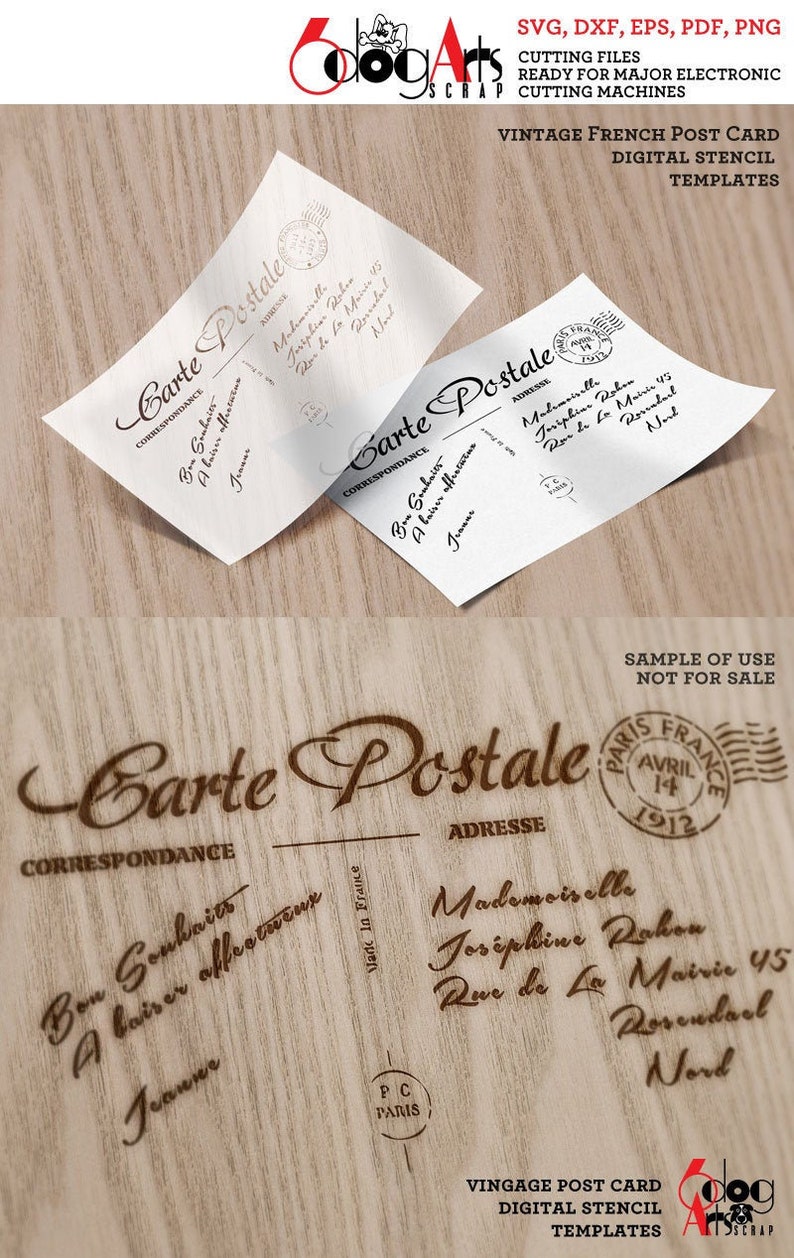 6dogArts
SCRAP
SVG, DXF, EPS, PDF, PNG
CUTTING FILES
READY FOR MAJOR ELECTRONIC
CUTTING MACHINES
VINTAGE FRENCH POST CARD
DIGITAL STENCIL
TEMPLATES
Carte Postale
CORRESPONDANCE
ADRESSE
Bon Souhaits
A baiser affectueux
Jeanne
Made In France
Mademoiselle
Joséphine Rahou
Rue de La Mairie 45
Rosendael
Nord
P C
PARIS
Carte Postale
PARIS FRANCE
AVRIL
14
1912
CORRESPONDANCE
ADRESSE
Bon Souhaits
A baiser affectueux
Jeanne
Made In France
Mademoiselle
Joséphine Rahou
Rue de La Mairie 45
Rosendael
Nord
P C
PARIS
SAMPLE OF USE
NOT FOR SALE
Carte Postale
PARIS FRANCE
AVRIL
14
1912
CORRESPONDANCE
ADRESSE
Bon Souhaits
A baiser affectueux
Jeanne
Made In France
Mademoiselle
Joséphine Rahou
Rue de La Mairie 45
Rosendael
Nord
P C
PARIS
VINGAGE POST CARD
DIGITAL STENCIL
TEMPLATES
6dog
Arts
SCRAP